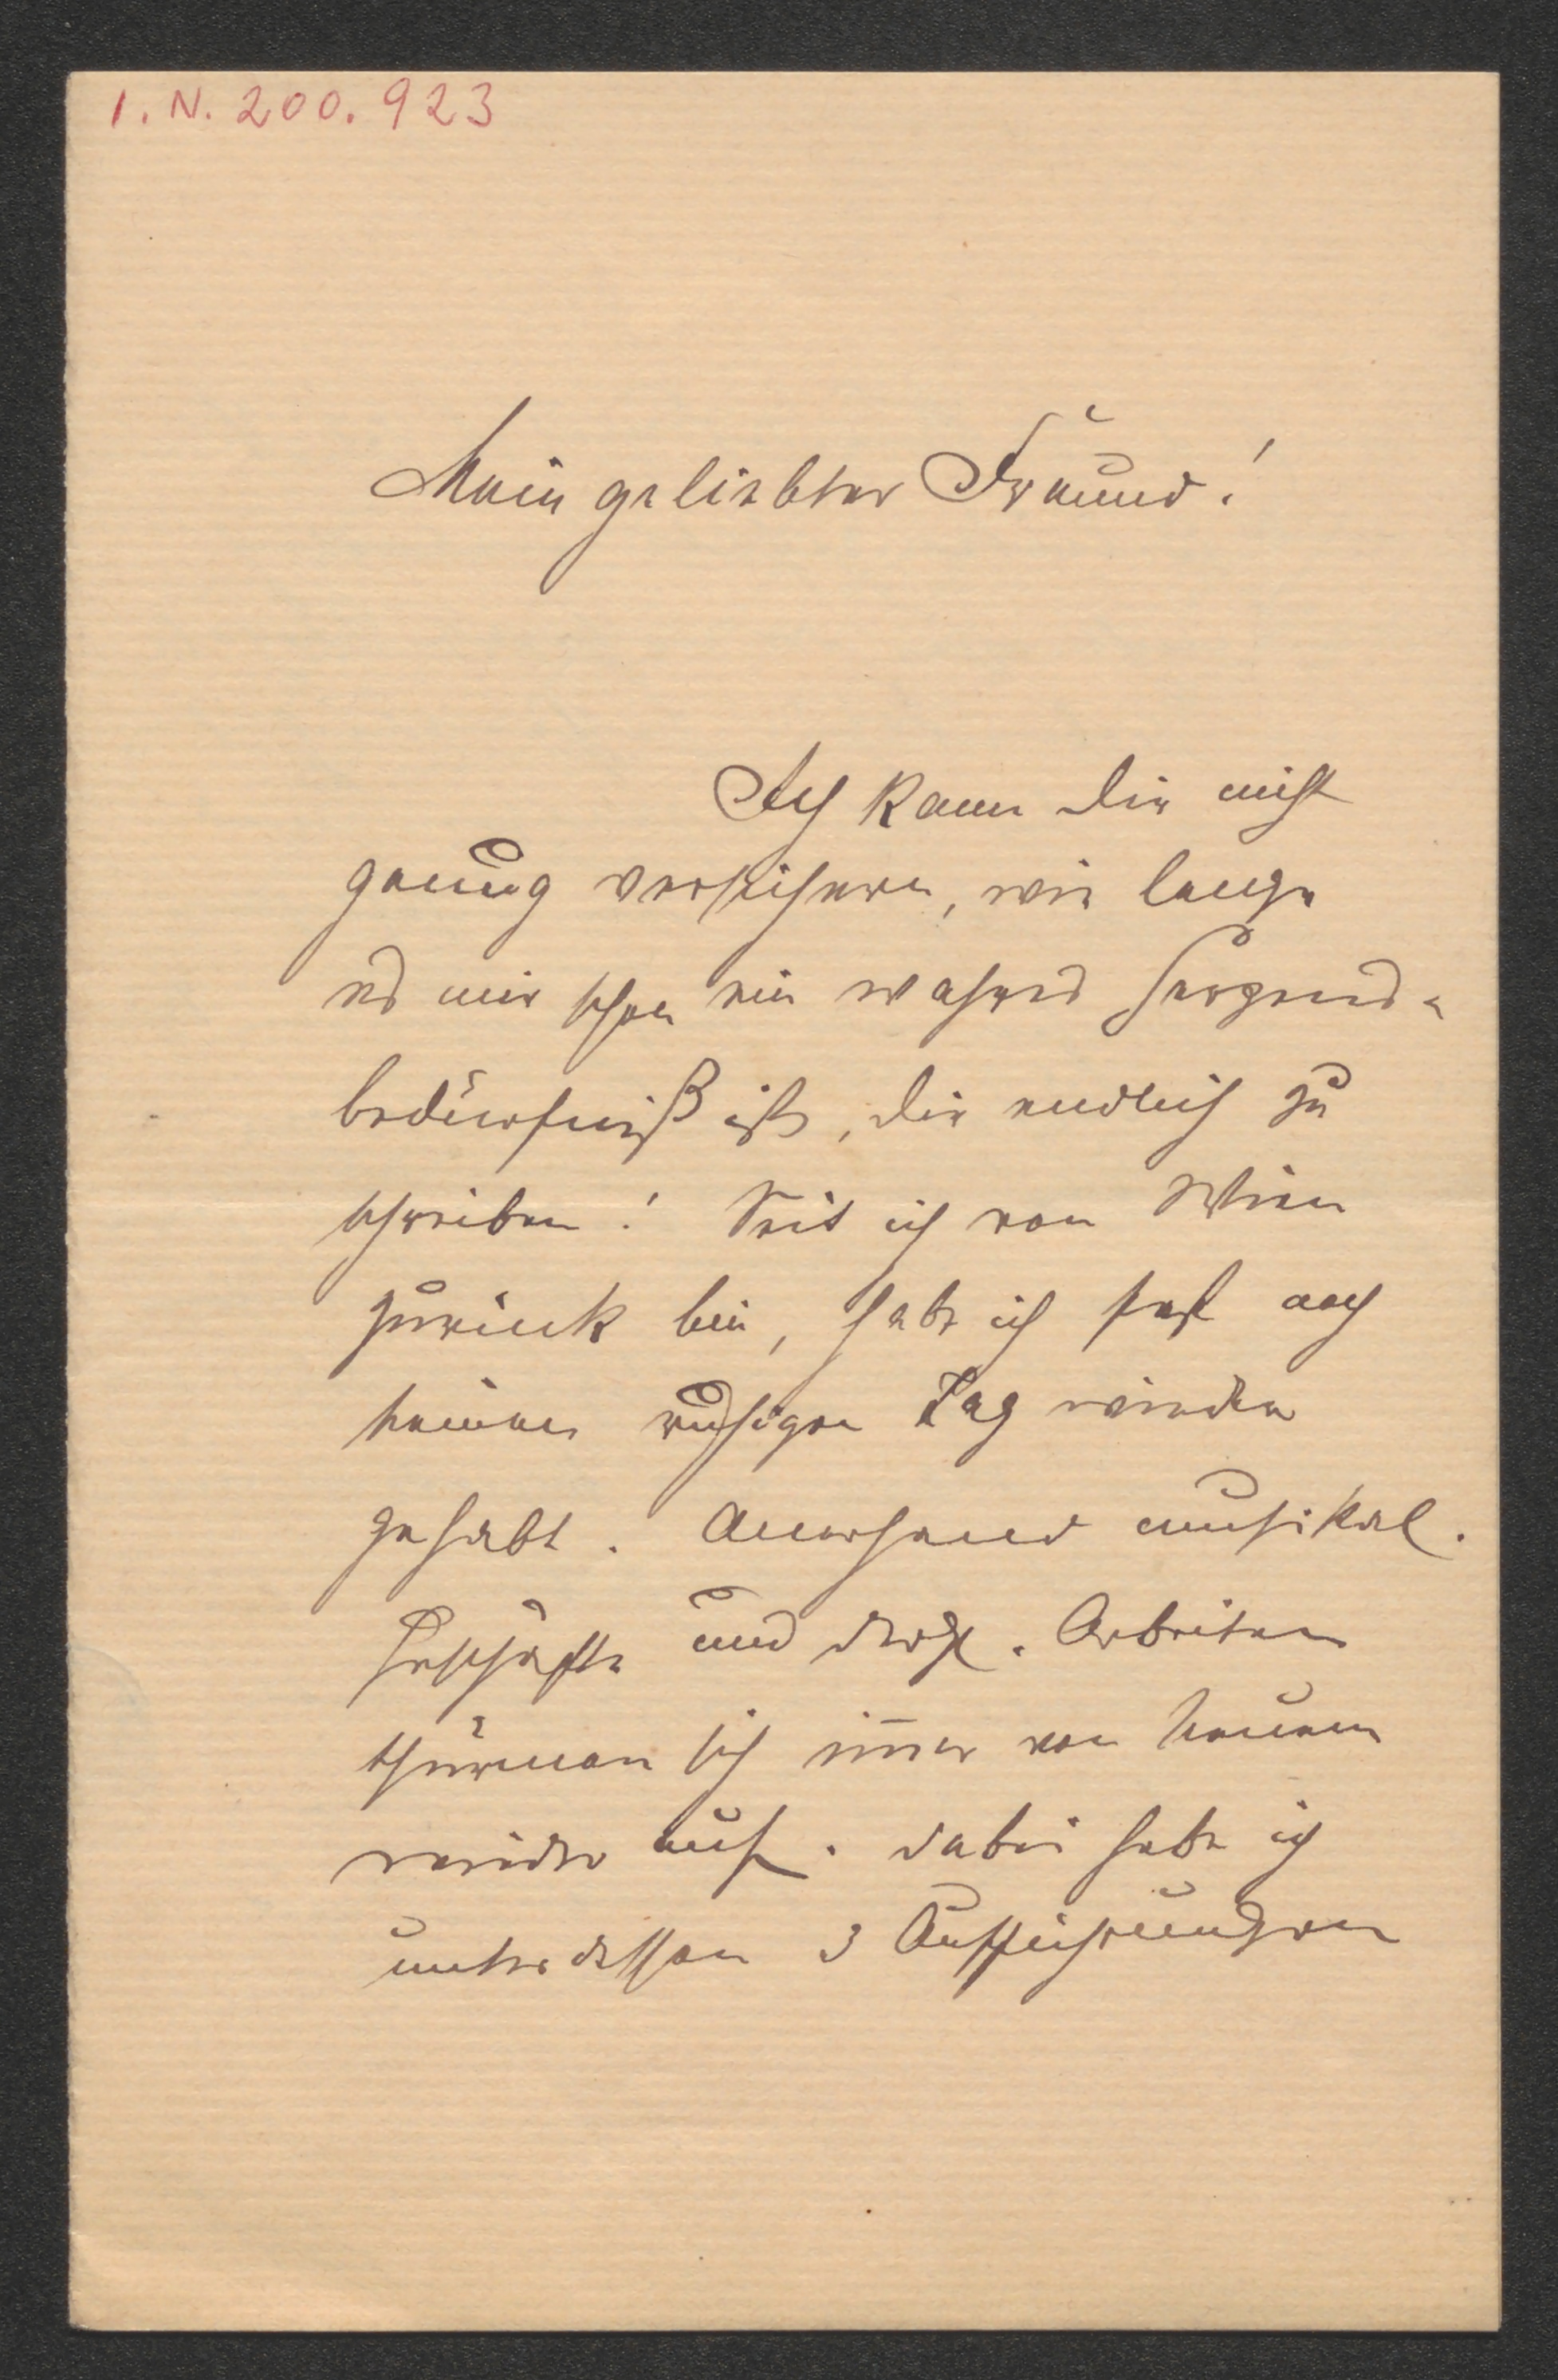 I. N. 200.923
Mein geliebter Freund!
Ich kann Dir nicht
genug versichern, wie lange
es mir schon ein wahres Herzens-
bedürfniß ist, Dir endlich zu
schreiben! Seit ich von Wien
zurück bin, habe ich fast noch
keinen ruhigen Tag wieder
gehabt. Allerhand musikal.
Geschäfte und dergl. Arbeiten
thürmen sich im̅er von Neuem
wieder auf. Dabei habe ich
unterdessen 3 Aufführungen